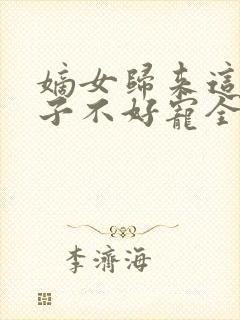 嫡女歸來這
子不好寵全
李濟海